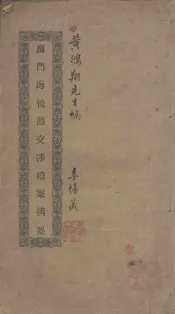 黃鴻翔先生編
李禧藏
廈門海後灘交涉檔案摘要